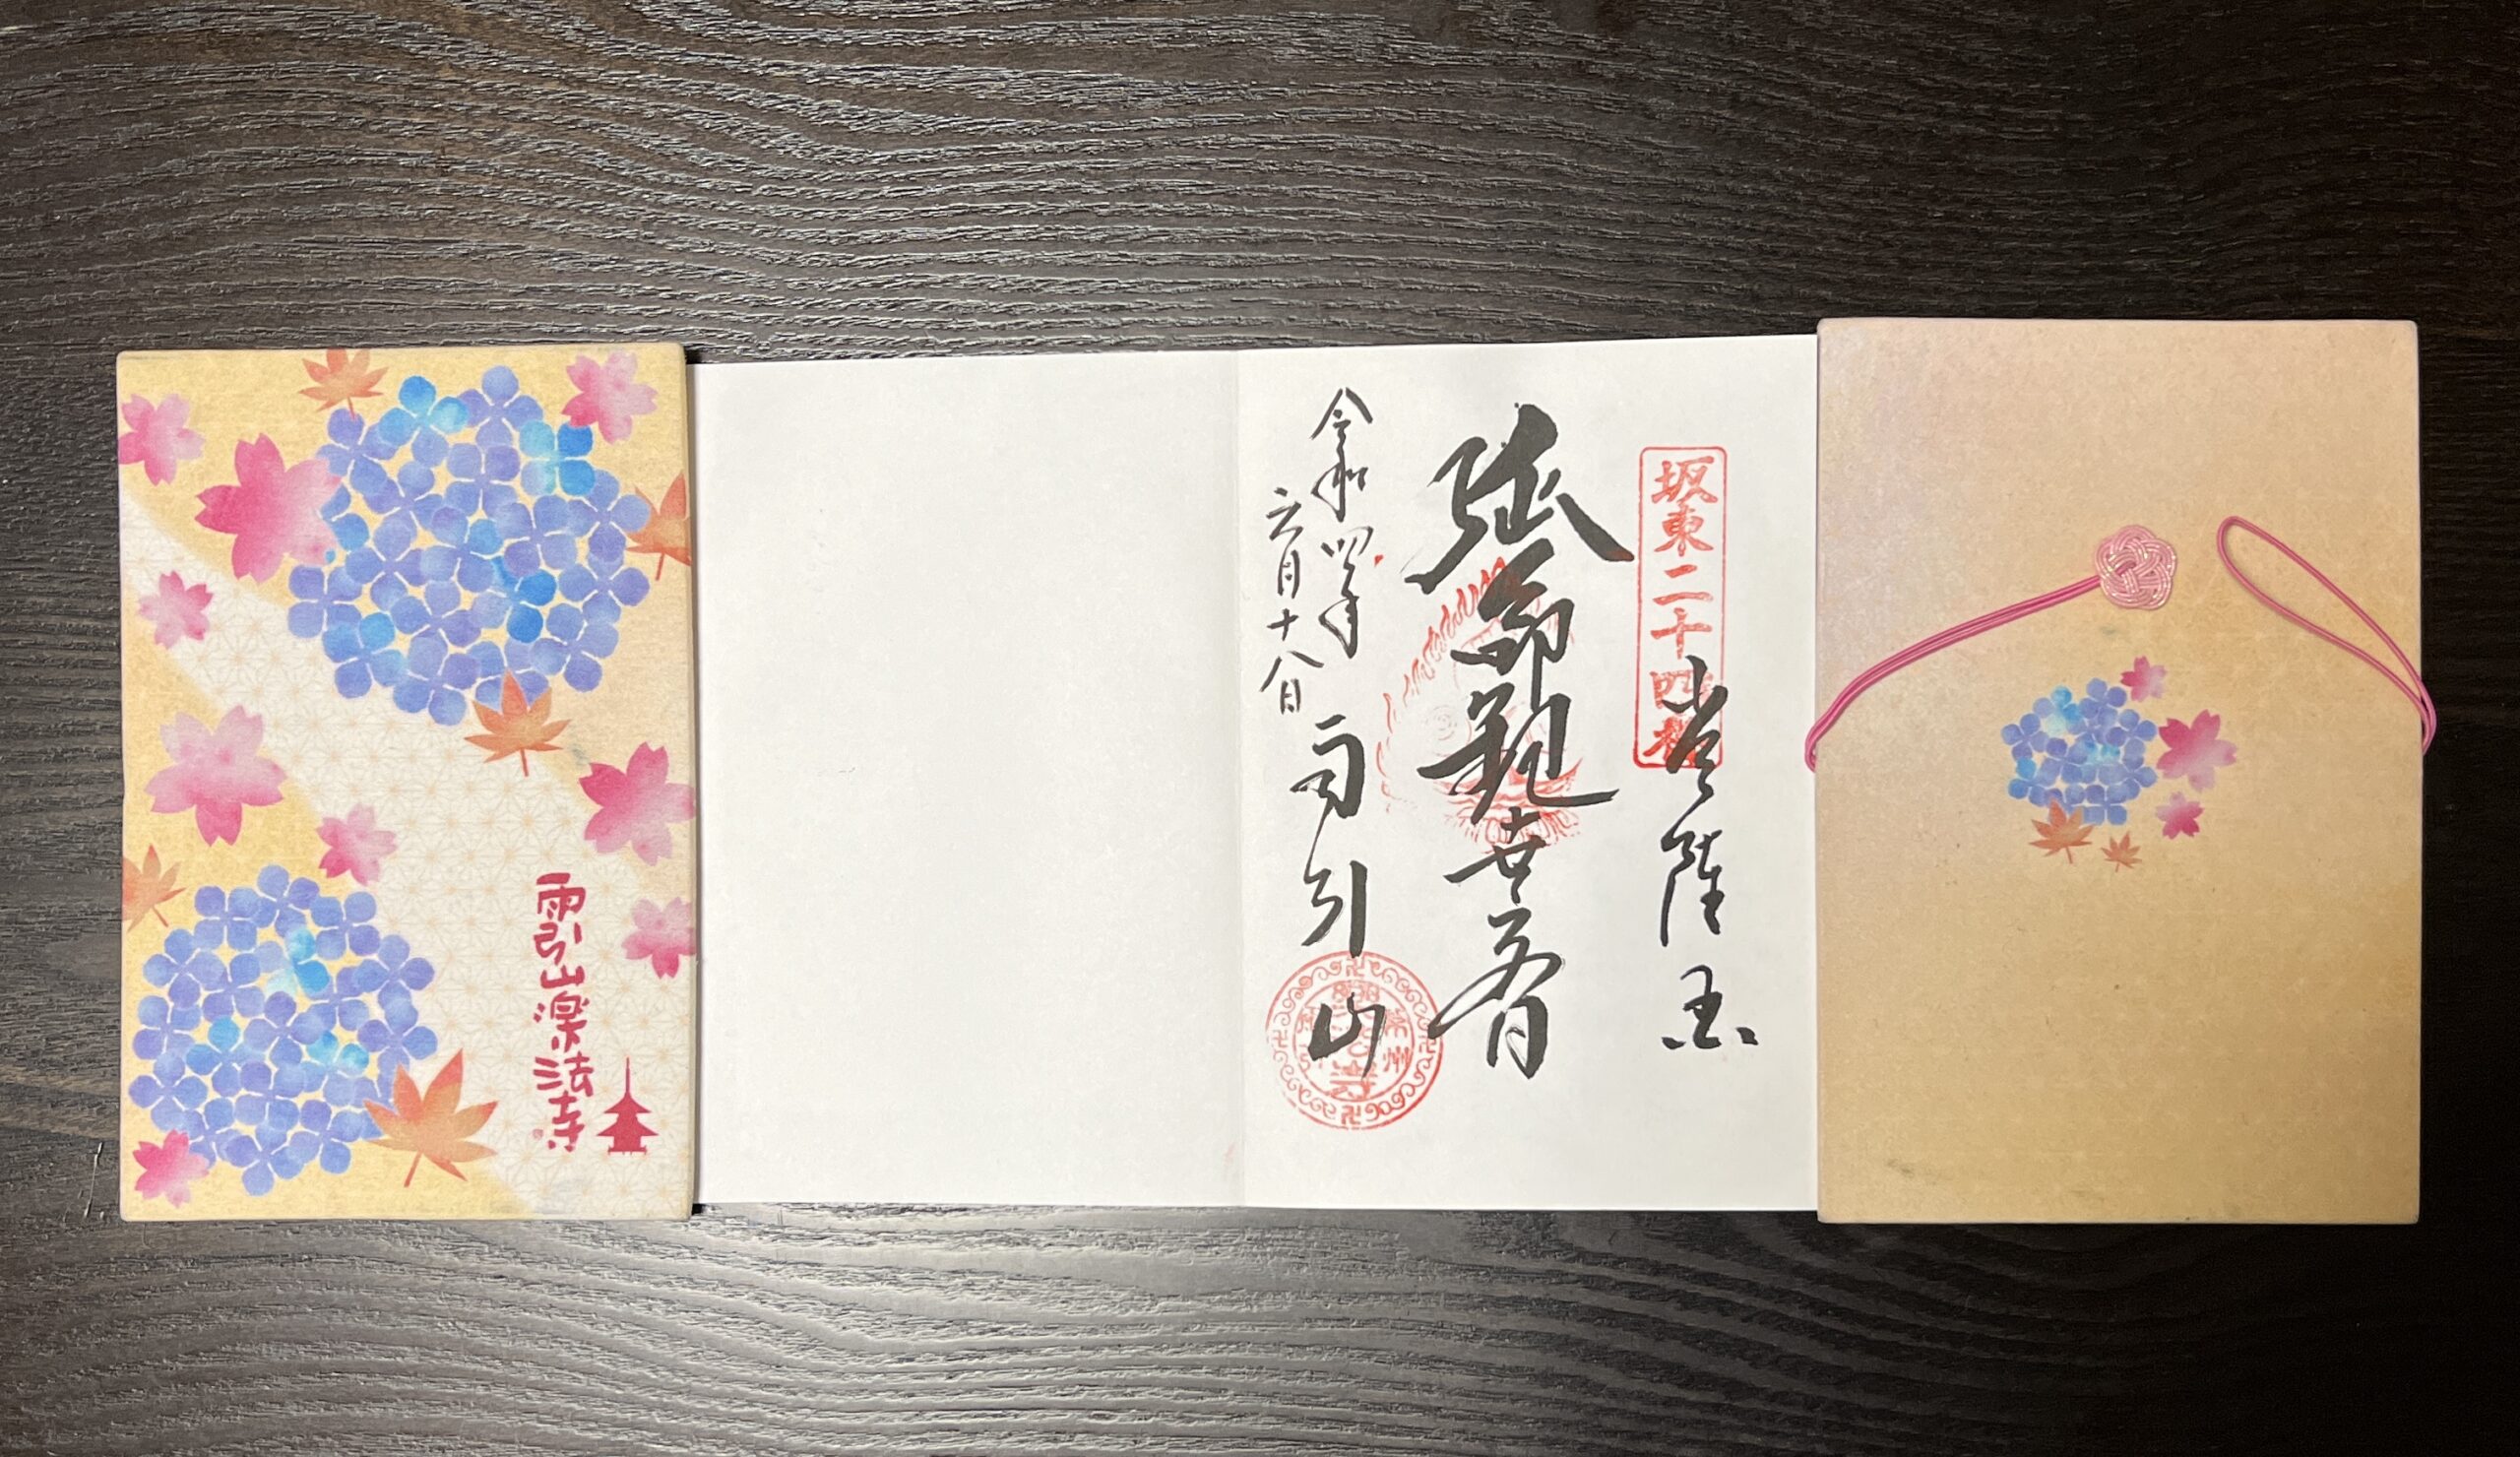 坂東二十四番
常陸国
延命観世音
令和四年
六月十八日
雨引山
雨引山楽法寺